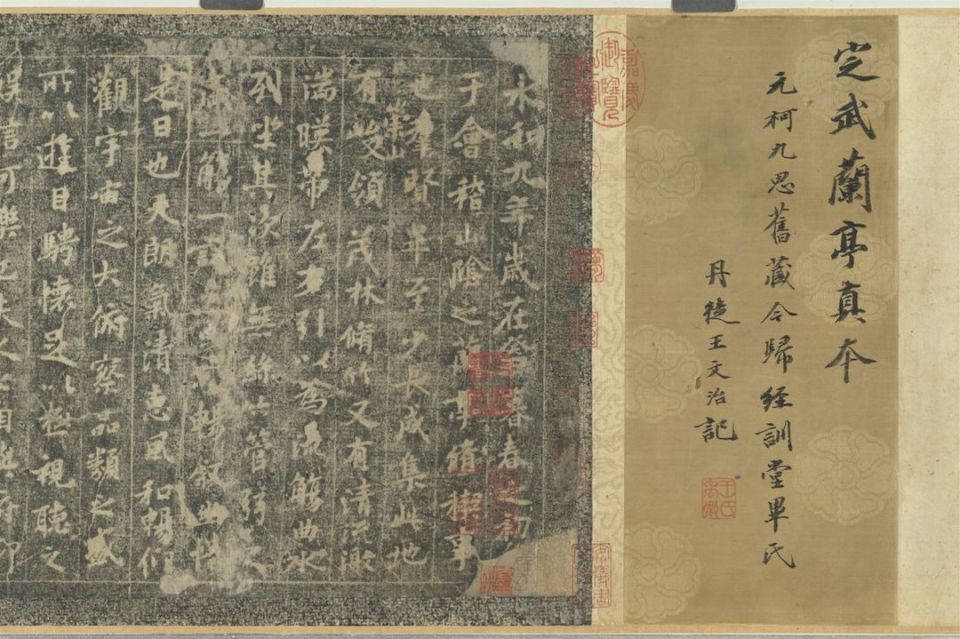 定武蘭亭真本
元柯九思舊藏今歸經訓堂畢氏
丹徒王文治記
嘉慶御覽之寶
永和九年歲在癸丑暮春之初
于會稽山陰之蘭亭脩稧事
也羣賢畢至少長咸集此地
崇山
有峻領茂林脩竹又有清流激
湍暎帶左右引以為流觴曲水
列坐其次雖無絲竹管弦之
盛一觴一詠亦足以暢敘幽情
是日也天朗氣清惠風和暢仰
觀宇宙之大俯察品類之盛
所以遊目騁懷足以極視聽之
娛信可樂也夫人之相與俯仰